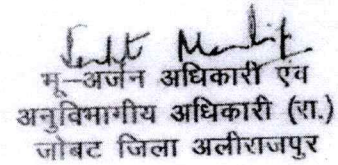 भू-अर्जन अधिकारी एवं
अनुविभागीय अधिकारी (रा.)
जोबट जिला अलीराजपुर